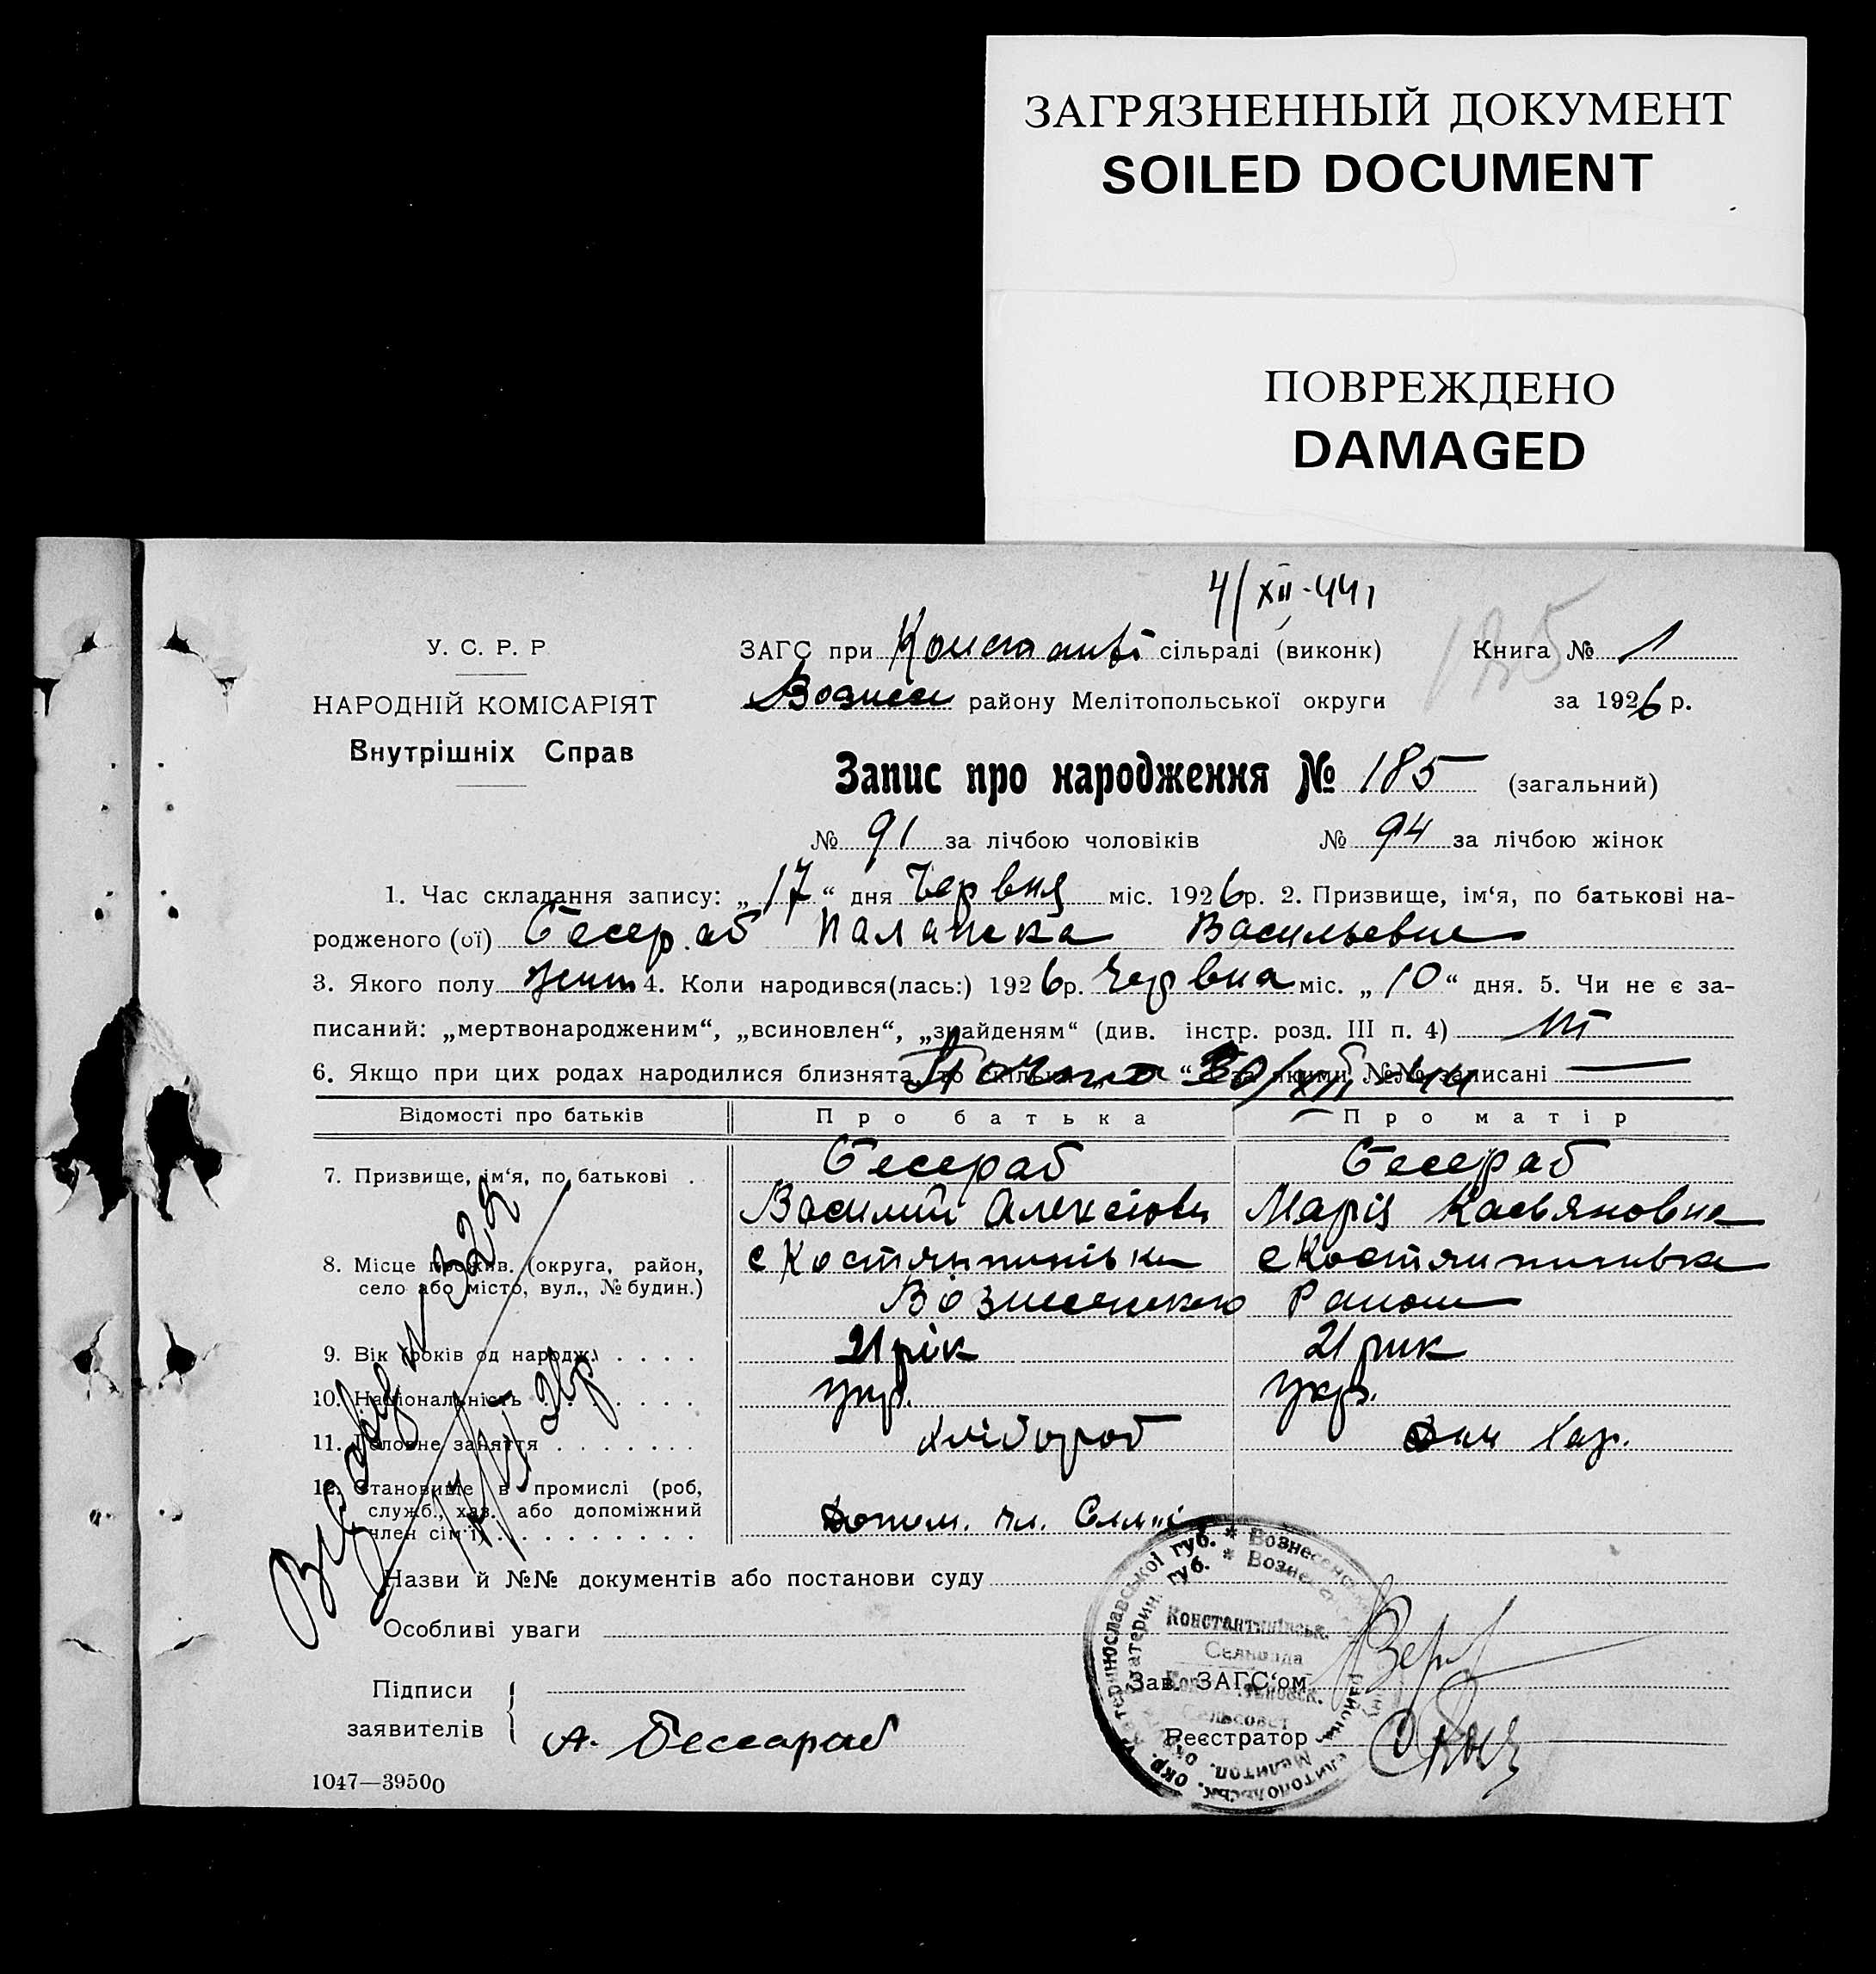 ЗАГРЯЗНЕННЫЙ ДОКУМЕНТ
SOILED DOCUMENT
ПОВРЕЖДЕНО
DAMAGED
4/XII-44
У. С. Р. Р
НАРОДНІЙ КОМІСАРІЯТ
Внутрішніх Справ
ЗАГС при Константі сільраді (виконк)
Вознесе району Мелітопольської округи
Книга № 1
за 1926 р.
185
Запис про народження № 185 (загальний)
№ 91 за лічбою чоловіків № 94 за лічбою жінок
1. Час складання запису: „17“ дня Червня міс. 1926 р. 2. Призвище, ім‘я, по батькові на-
родженого (ої) Бесераб Палашка Васильевне
3. Якого полу жин 4. Коли народився(лась:) 1926 р. Червна міс. „10“ дня. 5. Чи не є за-
писаний: „мертвонародженим“, „всиновлен“, „знайденям“ (див. інстр. розд. III п. 4) ні
6. Якщо при цих родах народилися близнята, то скільки якими №№ записані —
30/XII-44
Відомості про батьків Про батька Про матір
7. Призвище, ім‘я, по батькові . Бесераб Бесераб
Василий Алексіови Марія Касьяновне
8. Місце прожив. (округа, район, село або місто, вул., № будин.) с Костянтинівки с Костянтинивка
Вознесенского Раиону
9. Вік (років од народж.) . . . . 21 рік 21 рик
10. Національність . . . . . . . укр. укр.
11. Головне заняття . . . . . . . хлібороб дом хаз.
12. Становище в промислі (роб, служб., хаз. або допоміжний член сім‘ї) . . . . . . . . . . Допом. чл. Семиі
Назви й №№ документів або постанови суду
Особливі уваги
Підписи
заявителів
А. Бессараб
Зав. ЗАГС‘ом
Реєстратор
Константинівськ.
Сельрада
Сельсовет
1047—39500